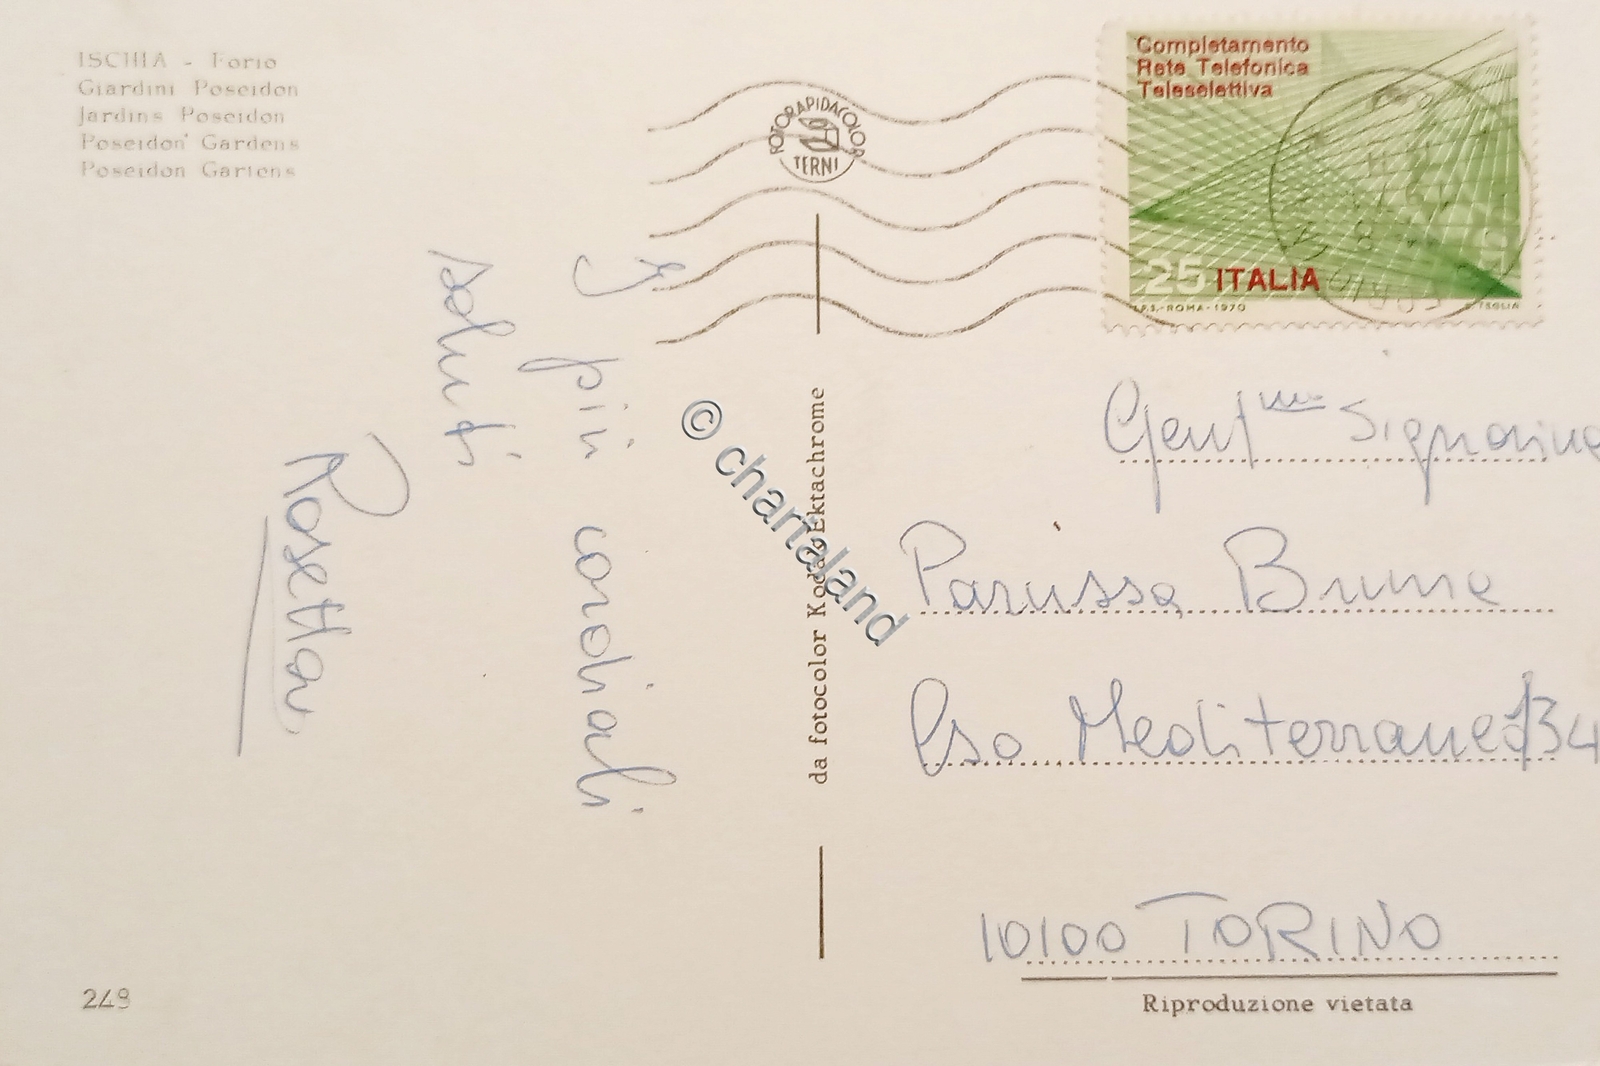 ISCHIA - Forio
Giardini Poseidon
Jardins Poseidon
Poseidon Gardens
Poseidon Gartens
I più cordiali
saluti
Rosetta
249
FOTORAPIDACOLOR
TERNI
da fotocolor Kodak Ektachrome
Completamento
Rete Telefonica
Teleselettiva
25 ITALIA
I.P.S.-ROMA-1970
Gent.ma Signorina
Parussa Bruna
Cso Mediterraneo 134
10100 TORINO
Riproduzione vietata
© chartaland